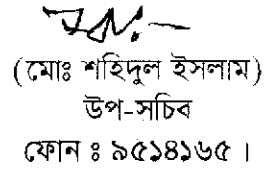 (মোঃ শহিদুল ইসলাম)
উপ-সচিব
ফোন ঃ ৯৫১৪১৬৫ ।